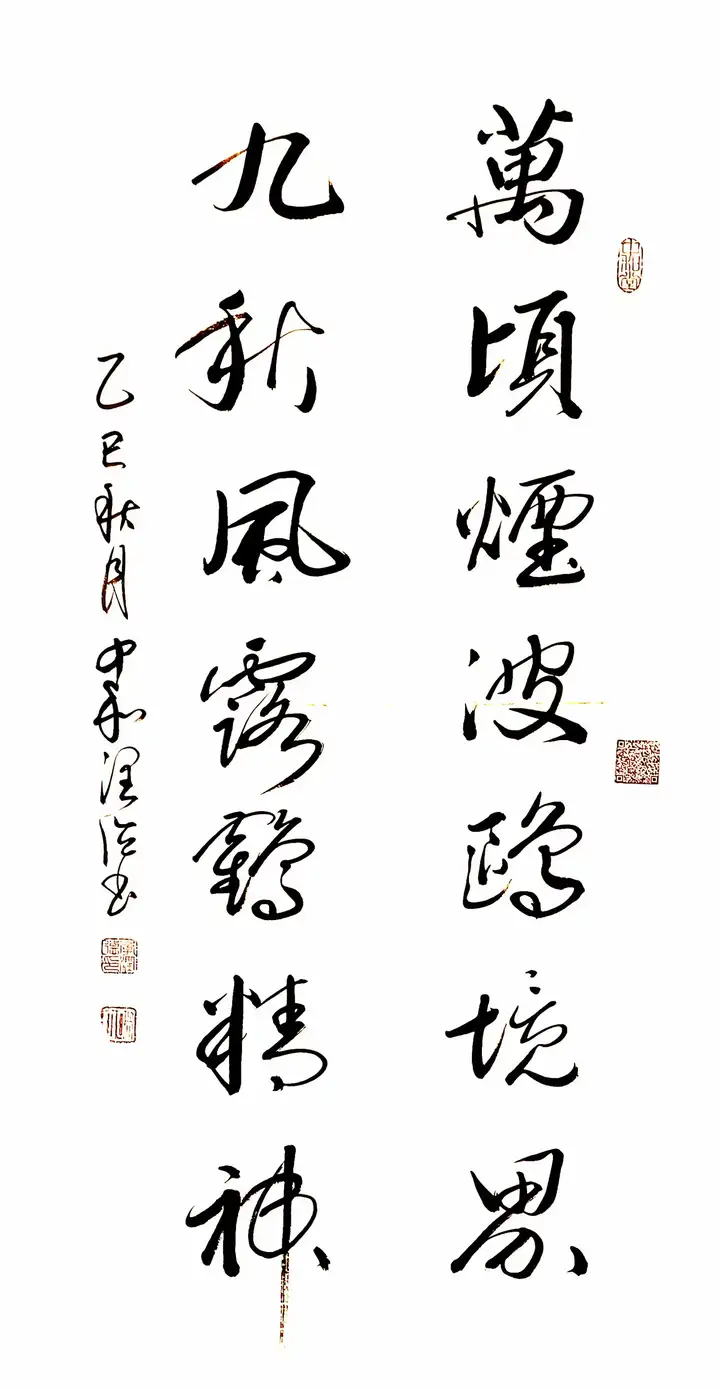 萬頃煙波鷗境界
九秋風露鶴精神
乙巳秋月中和潤潞書